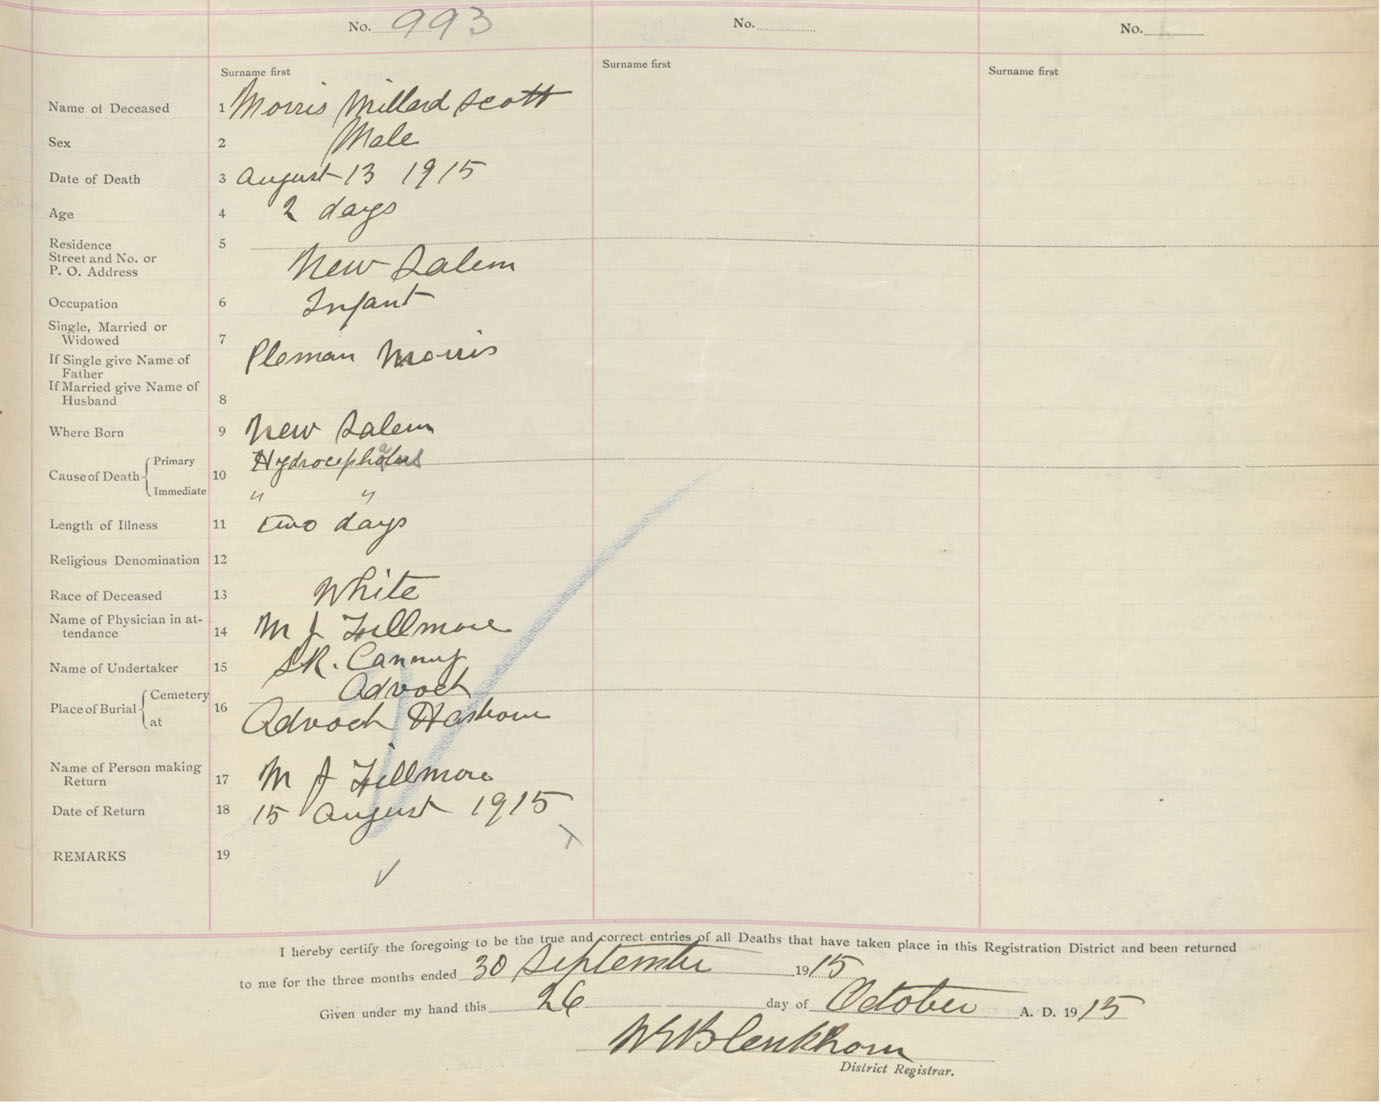 No. 993
No.
No.
Surname first
Surname first
Surname first
Name of Deceased 1 Morris Millard Scott
Sex 2 Male
Date of Death 3 August 13 1915
Age 4 2 days
Residence 5
Street and No. or
P. O. Address New Salem
Occupation 6 Infant
Single, Married or
Widowed 7
If Single give Name of
Father Pleman Morris
If Married give Name of
Husband 8
Where Born 9 New Salem
Cause of Death Primary 10 Hydrocephalus
Immediate " "
Length of Illness 11 two days
Religious Denomination 12
Race of Deceased 13 White
Name of Physician in at-
tendance 14 M J Fillmore
Name of Undertaker 15 S.R.
Place of Burial Cemetery 16 Advoch
at Advoch Harbour
Name of Person making
Return 17 M J Fillmore
Date of Return 18 15 August 1915
REMARKS 19
I hereby certify the foregoing to be the true and correct entries of all Deaths that have taken place in this Registration District and been returned
to me for the three months ended 30 September 1915
Given under my hand this 26 day of October A. D. 1915
Blenkhorn
District Registrar.